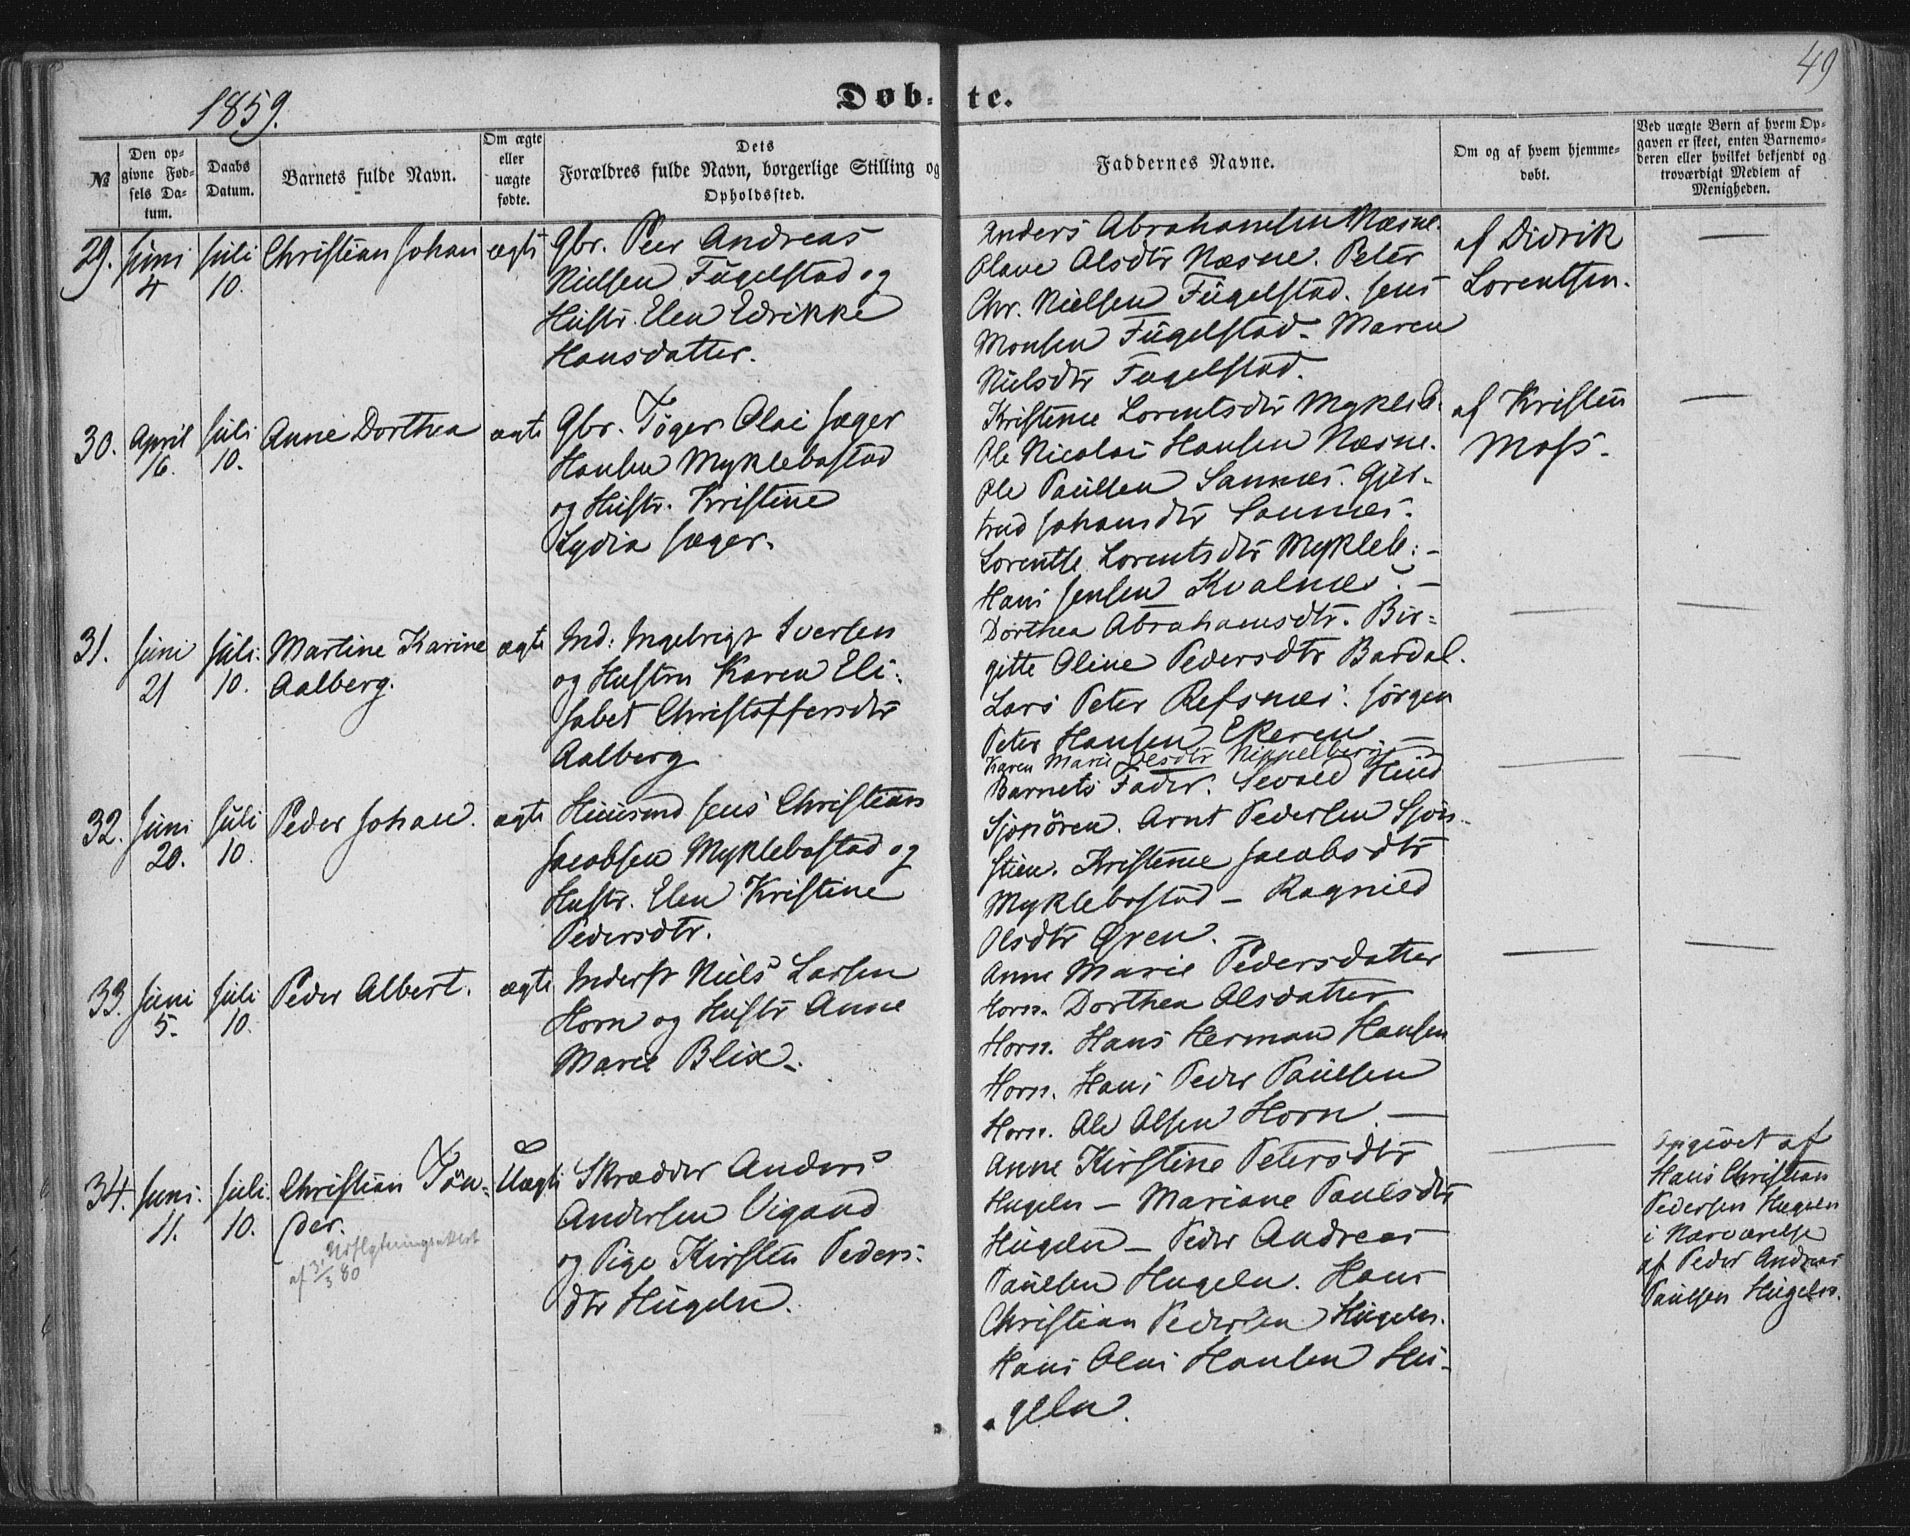 1859.
Døb-te.
49
№
Den opgivne Fødsels Datum.
Daabs Datum.
Barnets fulde Navn.
Om ægte eller uægte fødte.
Dets Forældres fulde Navn, borgerlige Stilling og Opholdssted.
Faddernes Navne.
Om og af hvem hjemmedøbt.
Ved uægte Børn af hvem Opgaven er skeet, enten Barnemoderen eller hvilket bekjendt og troværdigt Medlem af Menigheden.
29.
Juni 4
Juli 10.
Christian Johan
ægte
Gbr. Peer Andreas
Nielsen Fugelstad og
Hustr. Elen Edrikke
Hansdatter.
Anders Abrahamsen Næsne.
Olave Olsdtr Næsne. Peter
Chr. Nielsen Fugelstad. Jens
Monsen Fugelstad. Maren
Nielsdtr Fugelstad.
af Didrik
Lorentsen.
30.
April 16.
Juli 10.
Anne Dorthea
ægte
Gbr. Tøger Olai Jæger
Hansen Myklebostad
og Hustr. Kristine
Lydia Jæger.
Kristense Lorentsdtr Mykleb.
Ole Nicolai Hansen Næsne.
Ole Paulsen Sannæs. Gjer-
trud Johansdtr Sannæs.
Lorentse Lorentsdtr Mykleb. -
Hans Jensen Kvalnæs. -
af Kristen
Moss.
31.
Juni 21
Juli 10.
Martine Karine
Aalberg.
ægte
Ind: Ingebrigt Iversen
og Hustru Karen Eli-
sabet Christoffersdtr
Aalberg
Dorthea Abrahamsdtr. Bir-
gitte Oline Pedersdtr Bardal.
Lars Peter Refsnæs. Jørgen
Peter Hansen Ekeren. -
Karen Marie Olsdtr
32.
Juni 20.
Juli 10.
Peder Johan.
ægte
Huusmd Jens Christian
Jacobsen Myklebostad og
Hustr. Elen Kristine
Pedersdtr.
Barnets Fader. Sevald
Arnt Pedersen Sjøn-
stien. Kristense Jacobsdtr
Myklebostad - Ragnild
Olsdtr Øren.
33.
Juni 5.
Juli 10.
Peder Albert.
ægte
Inderst Niels Larsen
Horn og Hustr Anne
Marie Blix.
Anne Marie Pedersdatter
Horn. Dorthea Olsdatter
Horn. Hans Herman Hansen
Horn. Hans Peder Paulsen
Horn. Ole Olsen Horn. -
34.
Juni. 11.
Juli. 10.
Christian Tøn-
der.
Udflytningsattest
af 31/3 80
Uægte
Skrædder Anders
Andersen Vigand
og Pige Kirsten Peders-
dtr Hugeln.
Anne Kirstine Petersdtr
Hugeln - Mariane Paulsdtr
Hugeln - Peder Andreas
Paulsen Hugeln. Hans
Christian Pedersen Hugeln.
Hans Olai Hansen Hu-
geln.
Opgivet af
Hans Christian
Pedersen Hugeln
i Nærværelse
af Peder Andreas
Paulsen Hugeln.